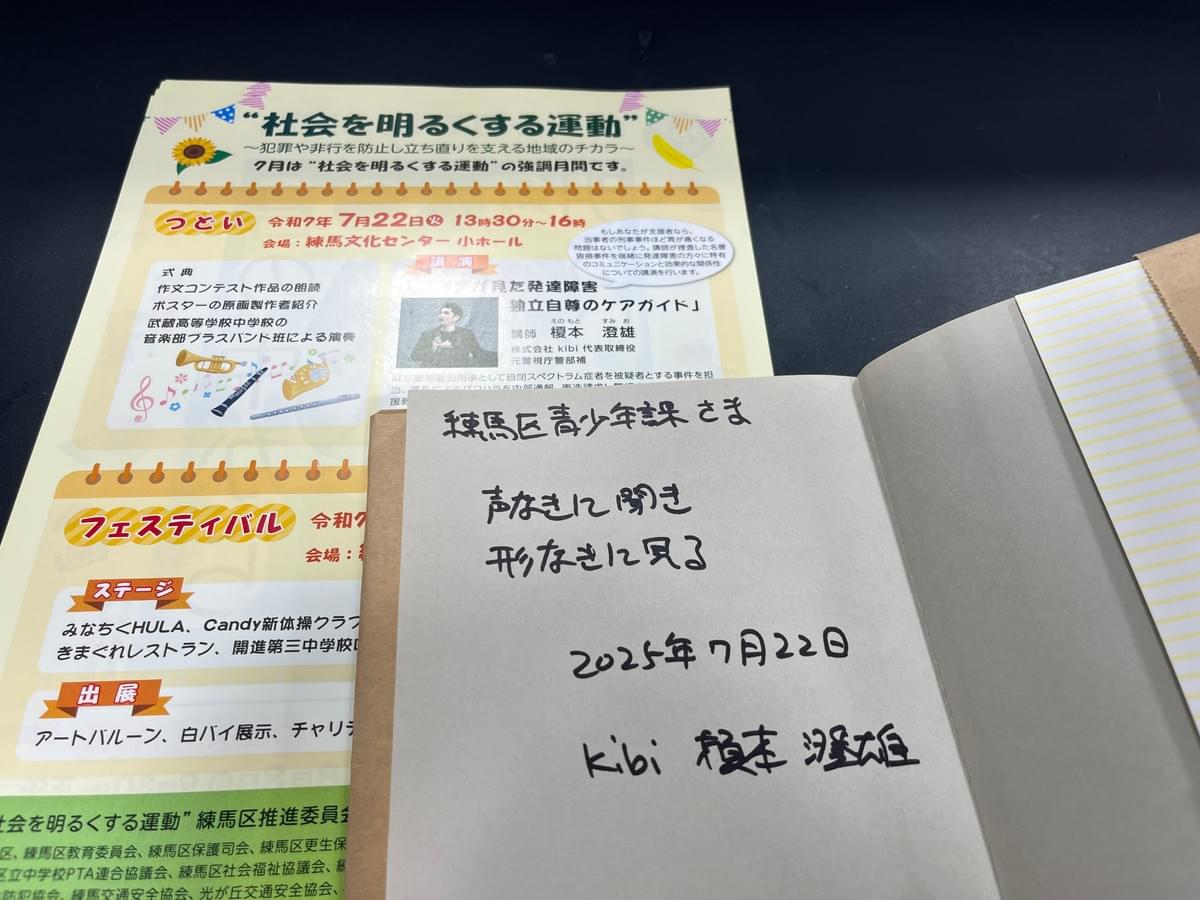 “社会を明るくする運動”
～犯罪や非行を防止し立ち直りを支える地域のチカラ～
7月は“社会を明るくする運動”の強調月間です。
つどい 令和7年 7月22日㊋ 13時30分～16時
会場：練馬文化センター 小ホール
もしあなたが支援者なら、
当事者の刑事事件ほど胃が痛くなる
問題はないでしょう。講師が捜査した名誉
毀損事件を端緒に発達障害の方々に特有
のコミュニケーションと効果的な関係性
についての講演を行います。
式典
作文コンテスト作品の朗読
ポスターの原画製作者紹介
武蔵高等学校中学校の
音楽部ブラスバンド班による演奏
講演
が見た発達障害
独立自尊のケアガイド」
えのもと すみお
講師 榎本 澄雄
株式会社 kibi 代表取締役
元警視庁警部補
刑事として自閉スペクトラム症者を被疑者とする事件を担
フェスティバル 令和7
会場：
ステージ
みなちくHULA、Candy新体操クラブ
きまぐれレストラン、開進第三中学校
出展
アートバルーン、白バイ展示、チャリテ
社会を明るくする運動”練馬区推進委員会
区、練馬区教育委員会、練馬区保護司会、練馬区更生保
区立中学校PTA連合協議会、練馬区社会福祉協議会、練
防犯協会、練馬交通安全協会、光が丘交通安全協会、
練馬区青少年課さま
声なきに聞き
形なきに見る
2025年7月22日
kibi 榎本 澄雄